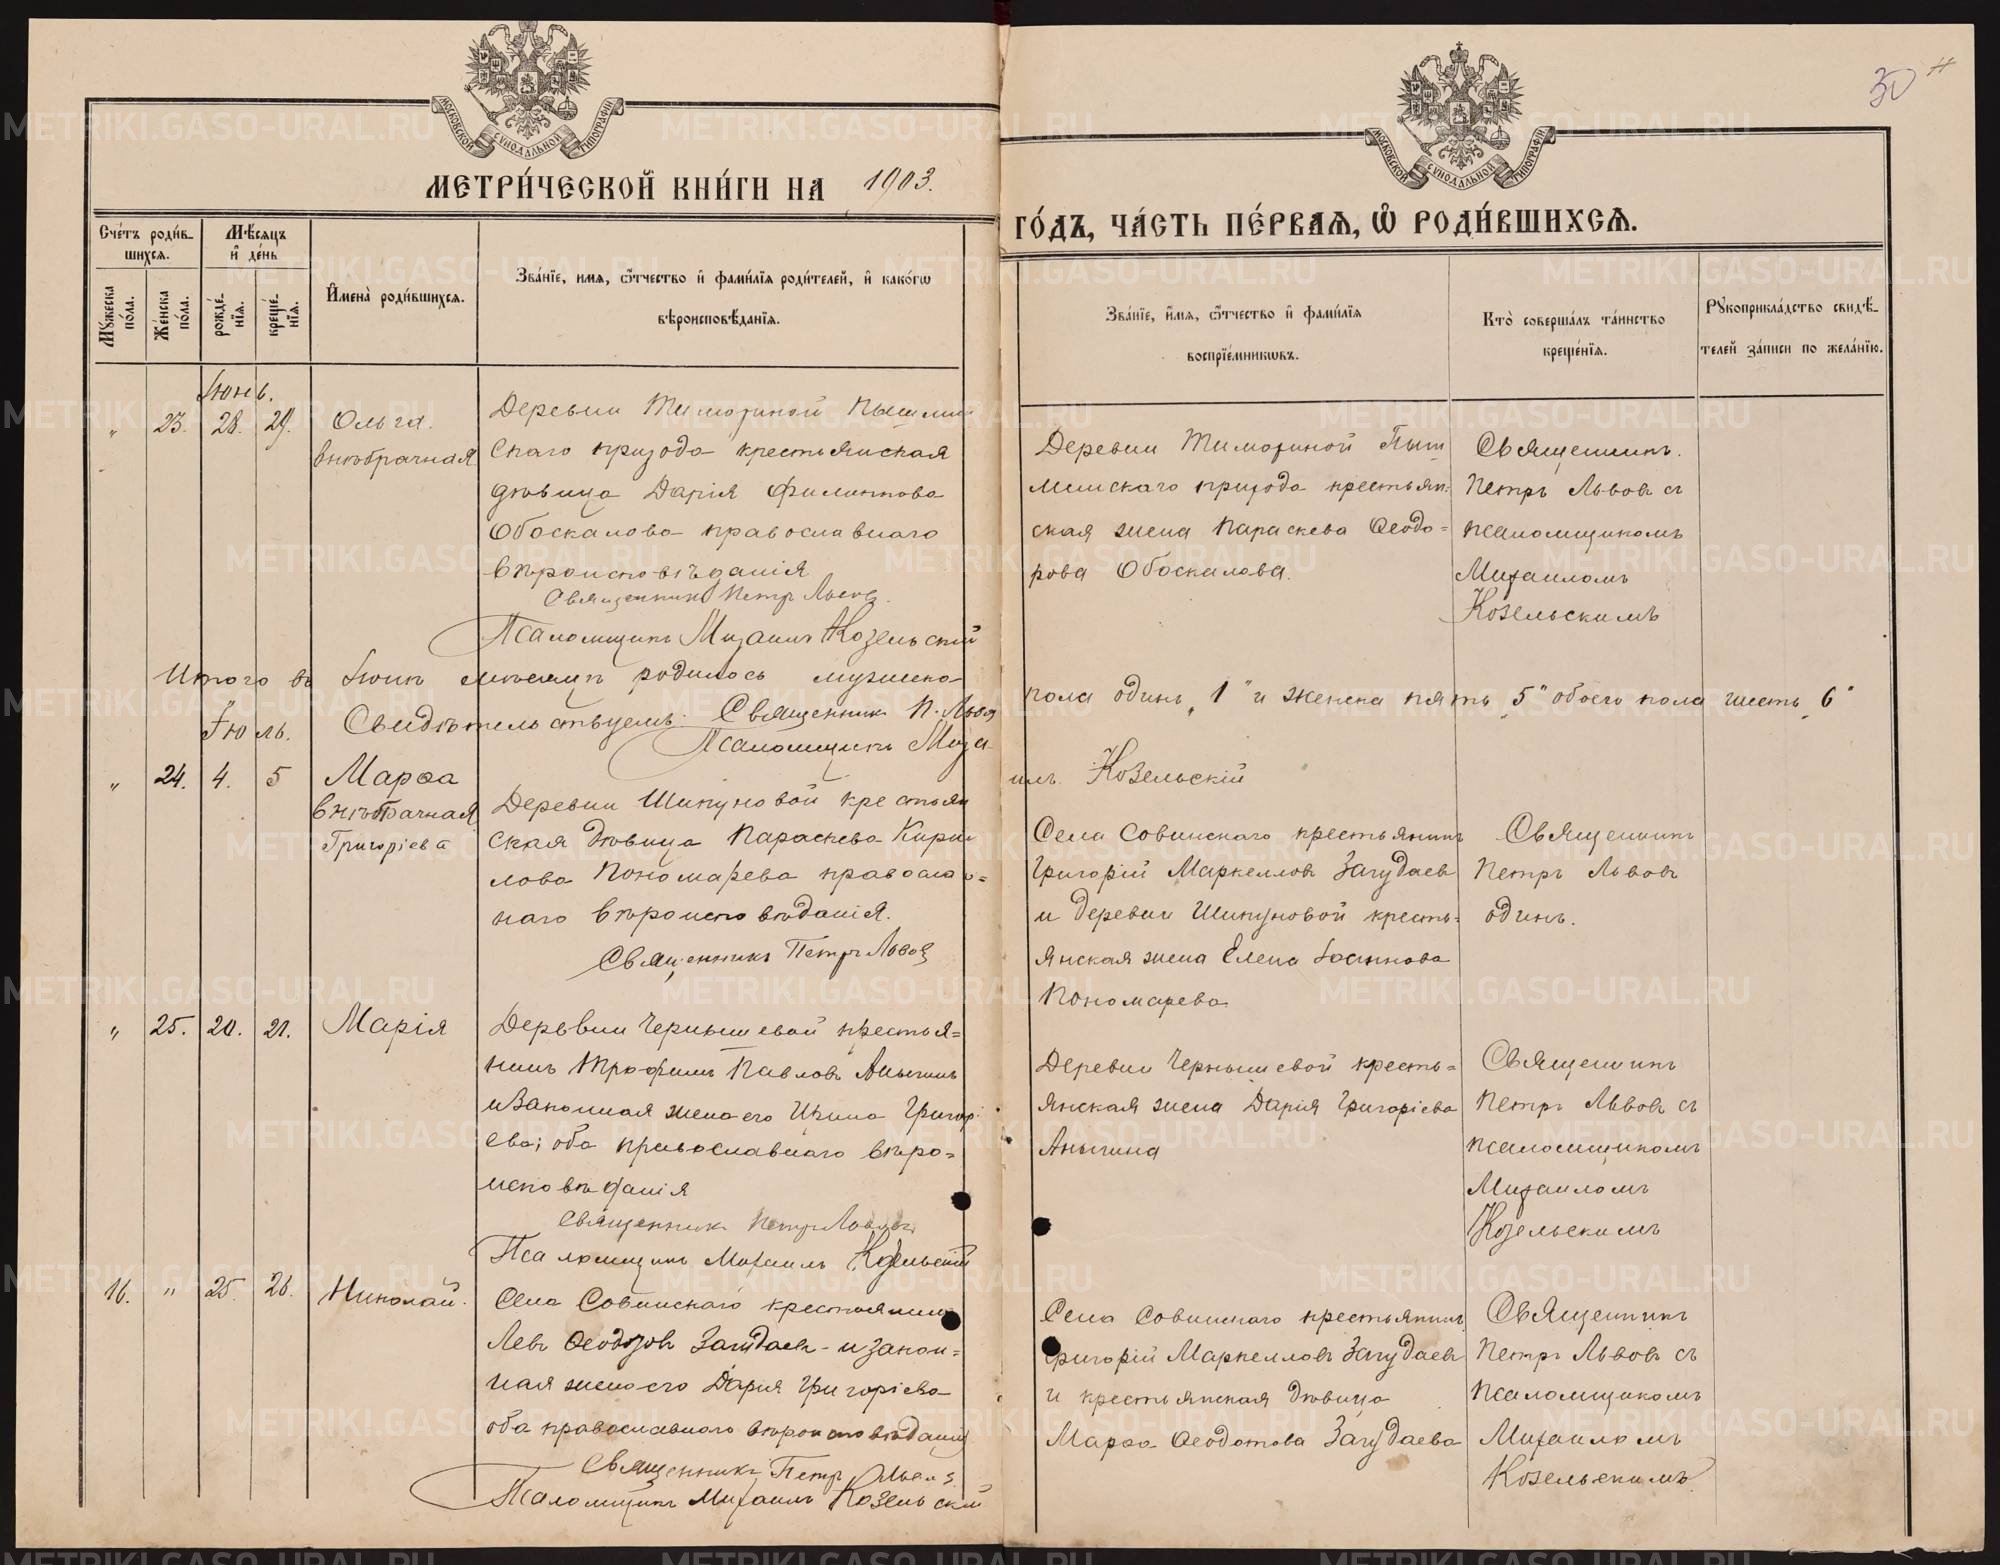 30
МЕТРИ́ЧЕСКОЙ КНИ́ГИ НА 1903.
ГО́ДЪ, ЧА́СТЬ ПЕ́РВАЯ, Ѽ РОДИ́ВШИХСЯ.
МОСКОВСКОЙ СУНОДАЛЬНОЙ ТИПОГРАФІИ
МОСКОВСКОЙ СУНОДАЛЬНОЙ ТИПОГРАФІИ
Сче́тъ роди́в-
шихся.
Мѣсяцъ
и де́нь
Мꙋжеска
по́ла.
Же́нска
по́ла.
рожде́-
нїя.
креще́-
нїя.
Имена̀ роди́вшихся.
Зва́нїе, имя, ѿчество и фами́лїя роди́телей, и како́гѡ
вѣроисповѣ́данїя.
Зва́нїе, и́мя, ѿчество и фами́лїя
воспрїе́мникѡвъ.
Кто̀ соверша́лъ та́инство
креще́нїя.
Рꙋкоприкла́дство свидѣ́-
телей за́писи по жела́нїю.
Іюнь.
" 23. 28. 29. Ольга.
внѣбрачная
Деревни Тимохиной Пышмин
скаго прихода крестьянская
дѣвица Дарія Филиппова
Обоскалова православнаго
вѣроисповѣданія
Священникъ Петръ Львовъ.
Псаломщикъ Михаилъ Козельскій
Деревни Тимохиной Пыш
минскаго прихода крестьян-
ская жена Параскева Ѳеодо=
рова Обоскалова.
Священникъ.
Петръ Львовъ съ
псаломщикомъ
Михаиломъ
Козельскимъ
Итого въ Іюнѣ мѣсяцѣ родилось мужеска
пола одинъ „1" и женска пять „5" обоего пола шесть „6"
Свидѣтельствуемъ: Священникъ П. Львов
Псаломщикъ Миха-
илъ Козельскій
Іюль.
" 24. 4. 5 Марѳа
внѣбрачная
Григоріева
Деревни Шипуновой крестьян
ская дѣвица Параскева Кирил
лова Пономарева православ=
наго вѣроисповѣданія.
Священникъ Петръ Львовъ
Села Совинскаго крестьянинъ
Григорій Маркелловъ Загудаевъ
и деревни Шипуновой кресть=
янская жена Елена Іоаннова
Пономарева
Священникъ
Петръ Львовъ
одинъ.
" 25. 20. 21. Марія
Деревни Чернышевой крестья=
нинъ Трофимъ Павловъ Аньгинъ
и законная жена его Ирина Григорі
ева; оба православнаго вѣро=
исповѣданія
Священникъ Петръ Львовъ
Псаломщикъ Михаилъ Козельскій
Деревни Чернышевой кресть=
янская жена Дарія Григоріева
Аньгина
Священникъ
Петръ Львовъ съ
псаломщикомъ
Михаиломъ
Козельскимъ
16. " 25. 26. Николай.
Села Совинскаго крестьянинъ
Левъ Ѳеодотовъ Загудаевъ и закон=
ная жена его Дарія Григоріева
оба православнаго вѣроисповѣданія
Священникъ Петръ Львовъ
Псаломщикъ Михаилъ Козельскій
Села Совинскаго крестьянинъ
Григорій Маркелловъ Загудаевъ
и крестьянская дѣвица
Марѳа Ѳеодотова Загудаева
Священникъ
Петръ Львовъ съ
псаломщикомъ
Михаиломъ
Козельскимъ
METRIKI.GASO-URAL.RU